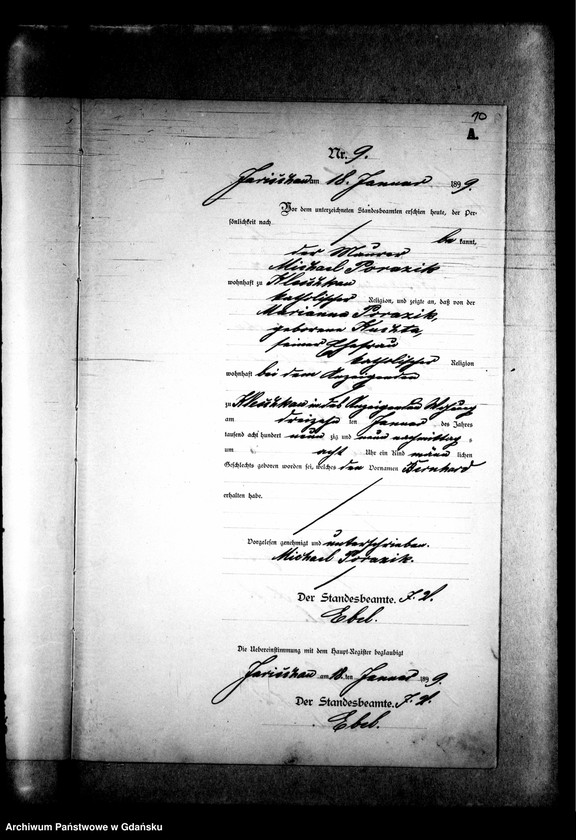 10
A.
Nr. 9.
am 18. Januar 1899.
Vor dem unterzeichneten Standesbeamten erschien heute, der Per-
sönlichkeit nach
be kannt,
der Maurer
Michael Porazik
wohnhaft zu Kleschkau
katholischer Religion, und zeigte an, daß von der
Marianna Porazik,
geborene Kuszta,
seiner Ehefrau
katholischer Religion
wohnhaft bei dem Anzeigenden
zu Kleschkau in des Anzeigenden Wohung
am dreizehn ten Januar des Jahres
tausend acht hundert neun zig und neun nachmittag s
um acht Uhr ein Kind männ lichen
Geschlechts geboren worden sei, welches den Vornamen Bernhard
erhalten habe.
Vorgelesen genehmigt und unterschrieben.
Michael Porazik.
Der Standesbeamte. J. V.
Ebel.
Die Uebereinstimmung mit dem Haupt-Register beglaubigt
am 18. ten Januar 1899
Der Standesbeamte. J. V.
Ebel.
Archiwum Państwowe w Gdańsku